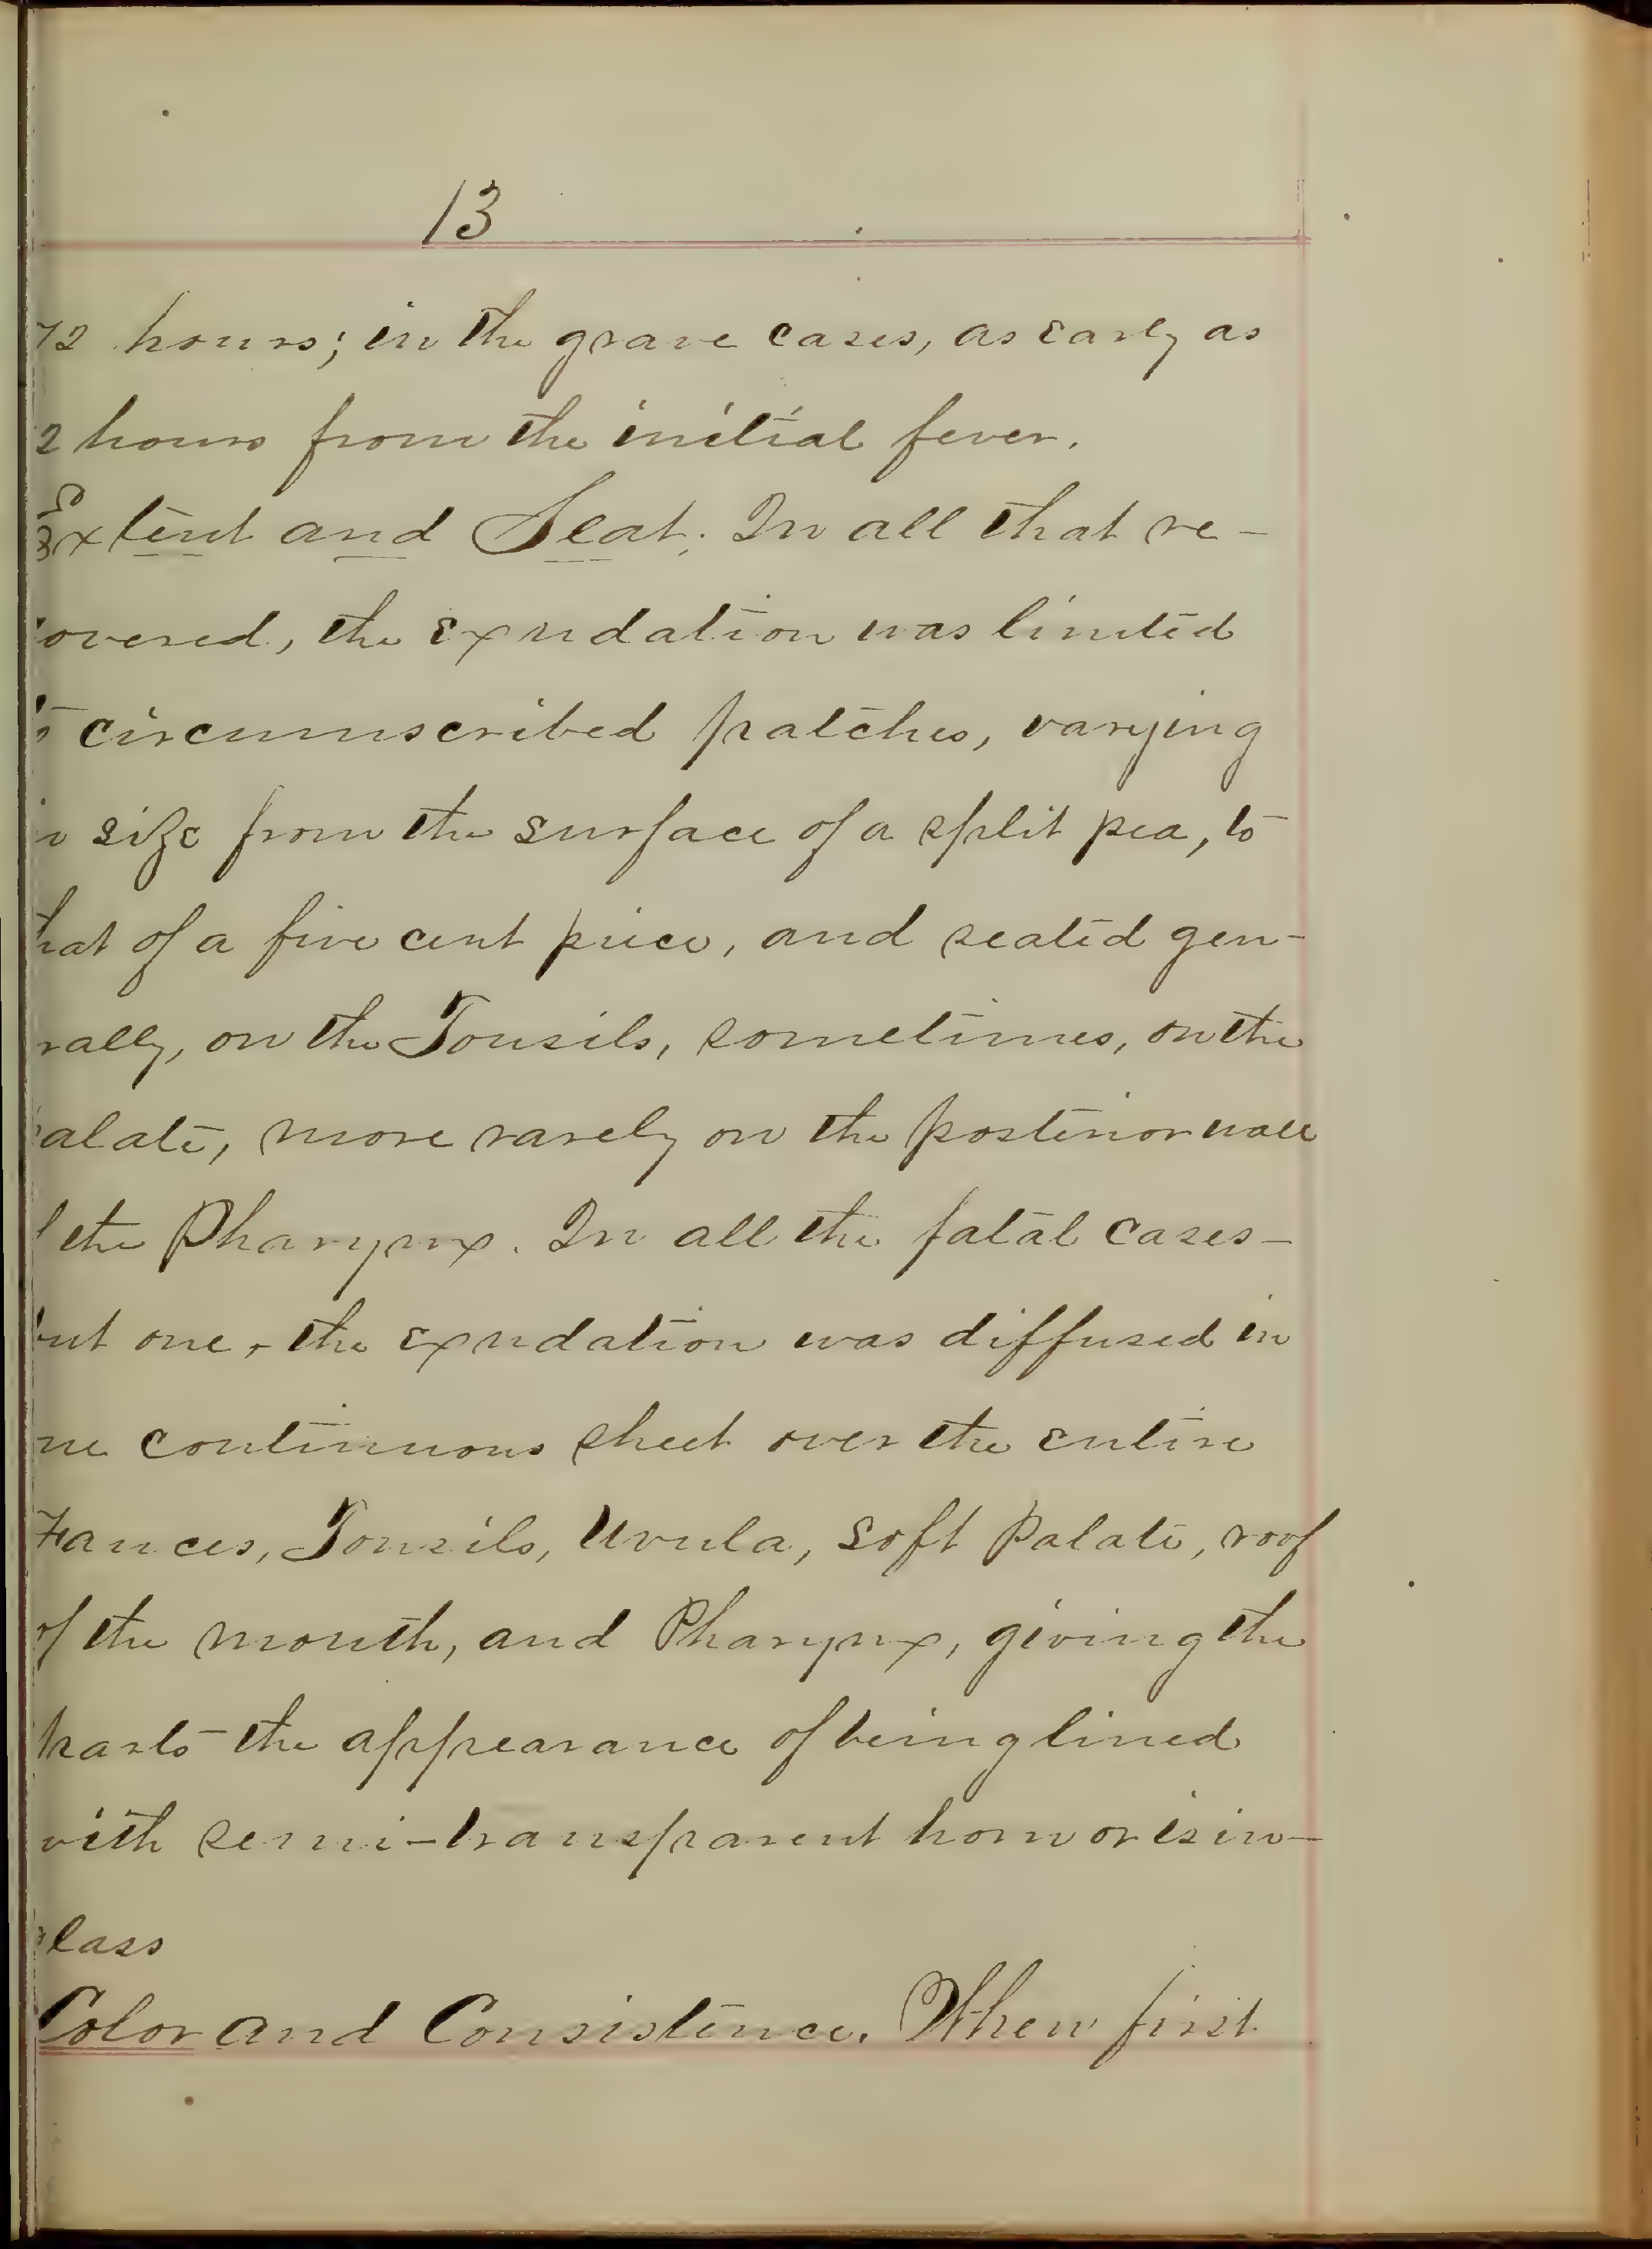 13
72 hours; in the grave cases, as early as
2 hours from the initial fever.
Extent and Seat. In all that re-
covered, the exudation was limited
to circumscribed patches, varying
in size from the surface of a split pea, to
that of a five cent piece, and seated gen-
rally, on the Tonsils, sometimes, on the
alate, more rarely on the posterior wall
f the Pharynx. In all the fatal cases-
but one, the exudation was diffused in
ne continuous sheet over the entire
Fances, Tonsils, Uvula, soft Palate, roof
of the mouth, and Pharynx, giving the
parts the appearance of being lined
with semi-transparent horn or isin-
glass
Color and Consistence. When first